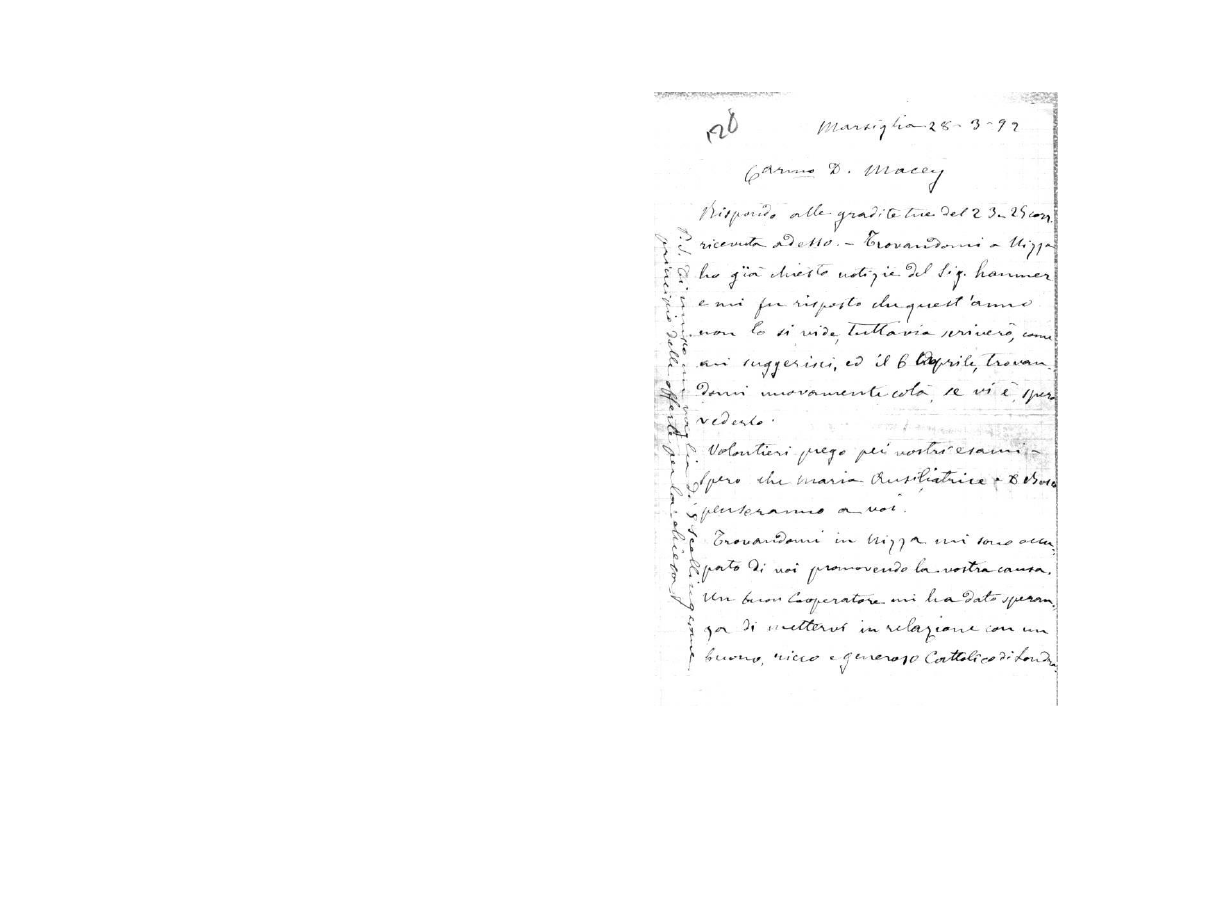 26
Marsiglia 28-3-92
Carmo D. Macey
Rispondo alle gradite tue del 23-25 corr.
ricevuta adesso. - Trovandomi a Nizza
ho già chiesto notizie del Sig. hanmer
e mi fu risposto che quest'anno
non lo si vide, tuttavia scriverò, come
mi suggerisci, ed il 6 Aprile, trovan-
domi nuovamente colà, se vi è, spero
vederlo.
Volontieri prego pei vostri esami -
spero che Maria Ausiliatrice e D Bosco
penseranno a voi.
Trovandomi in Nizza mi sono occu-
pato di voi promovendo la vostra causa.
Un buon Cooperatore mi ha dato speran-
za di mettervi in relazione con un
buono, ricco e generoso Cattolico di Londra.
P.S. Ti unisco un vaglia di 8 scellini
principio delle offerte per la chiesa